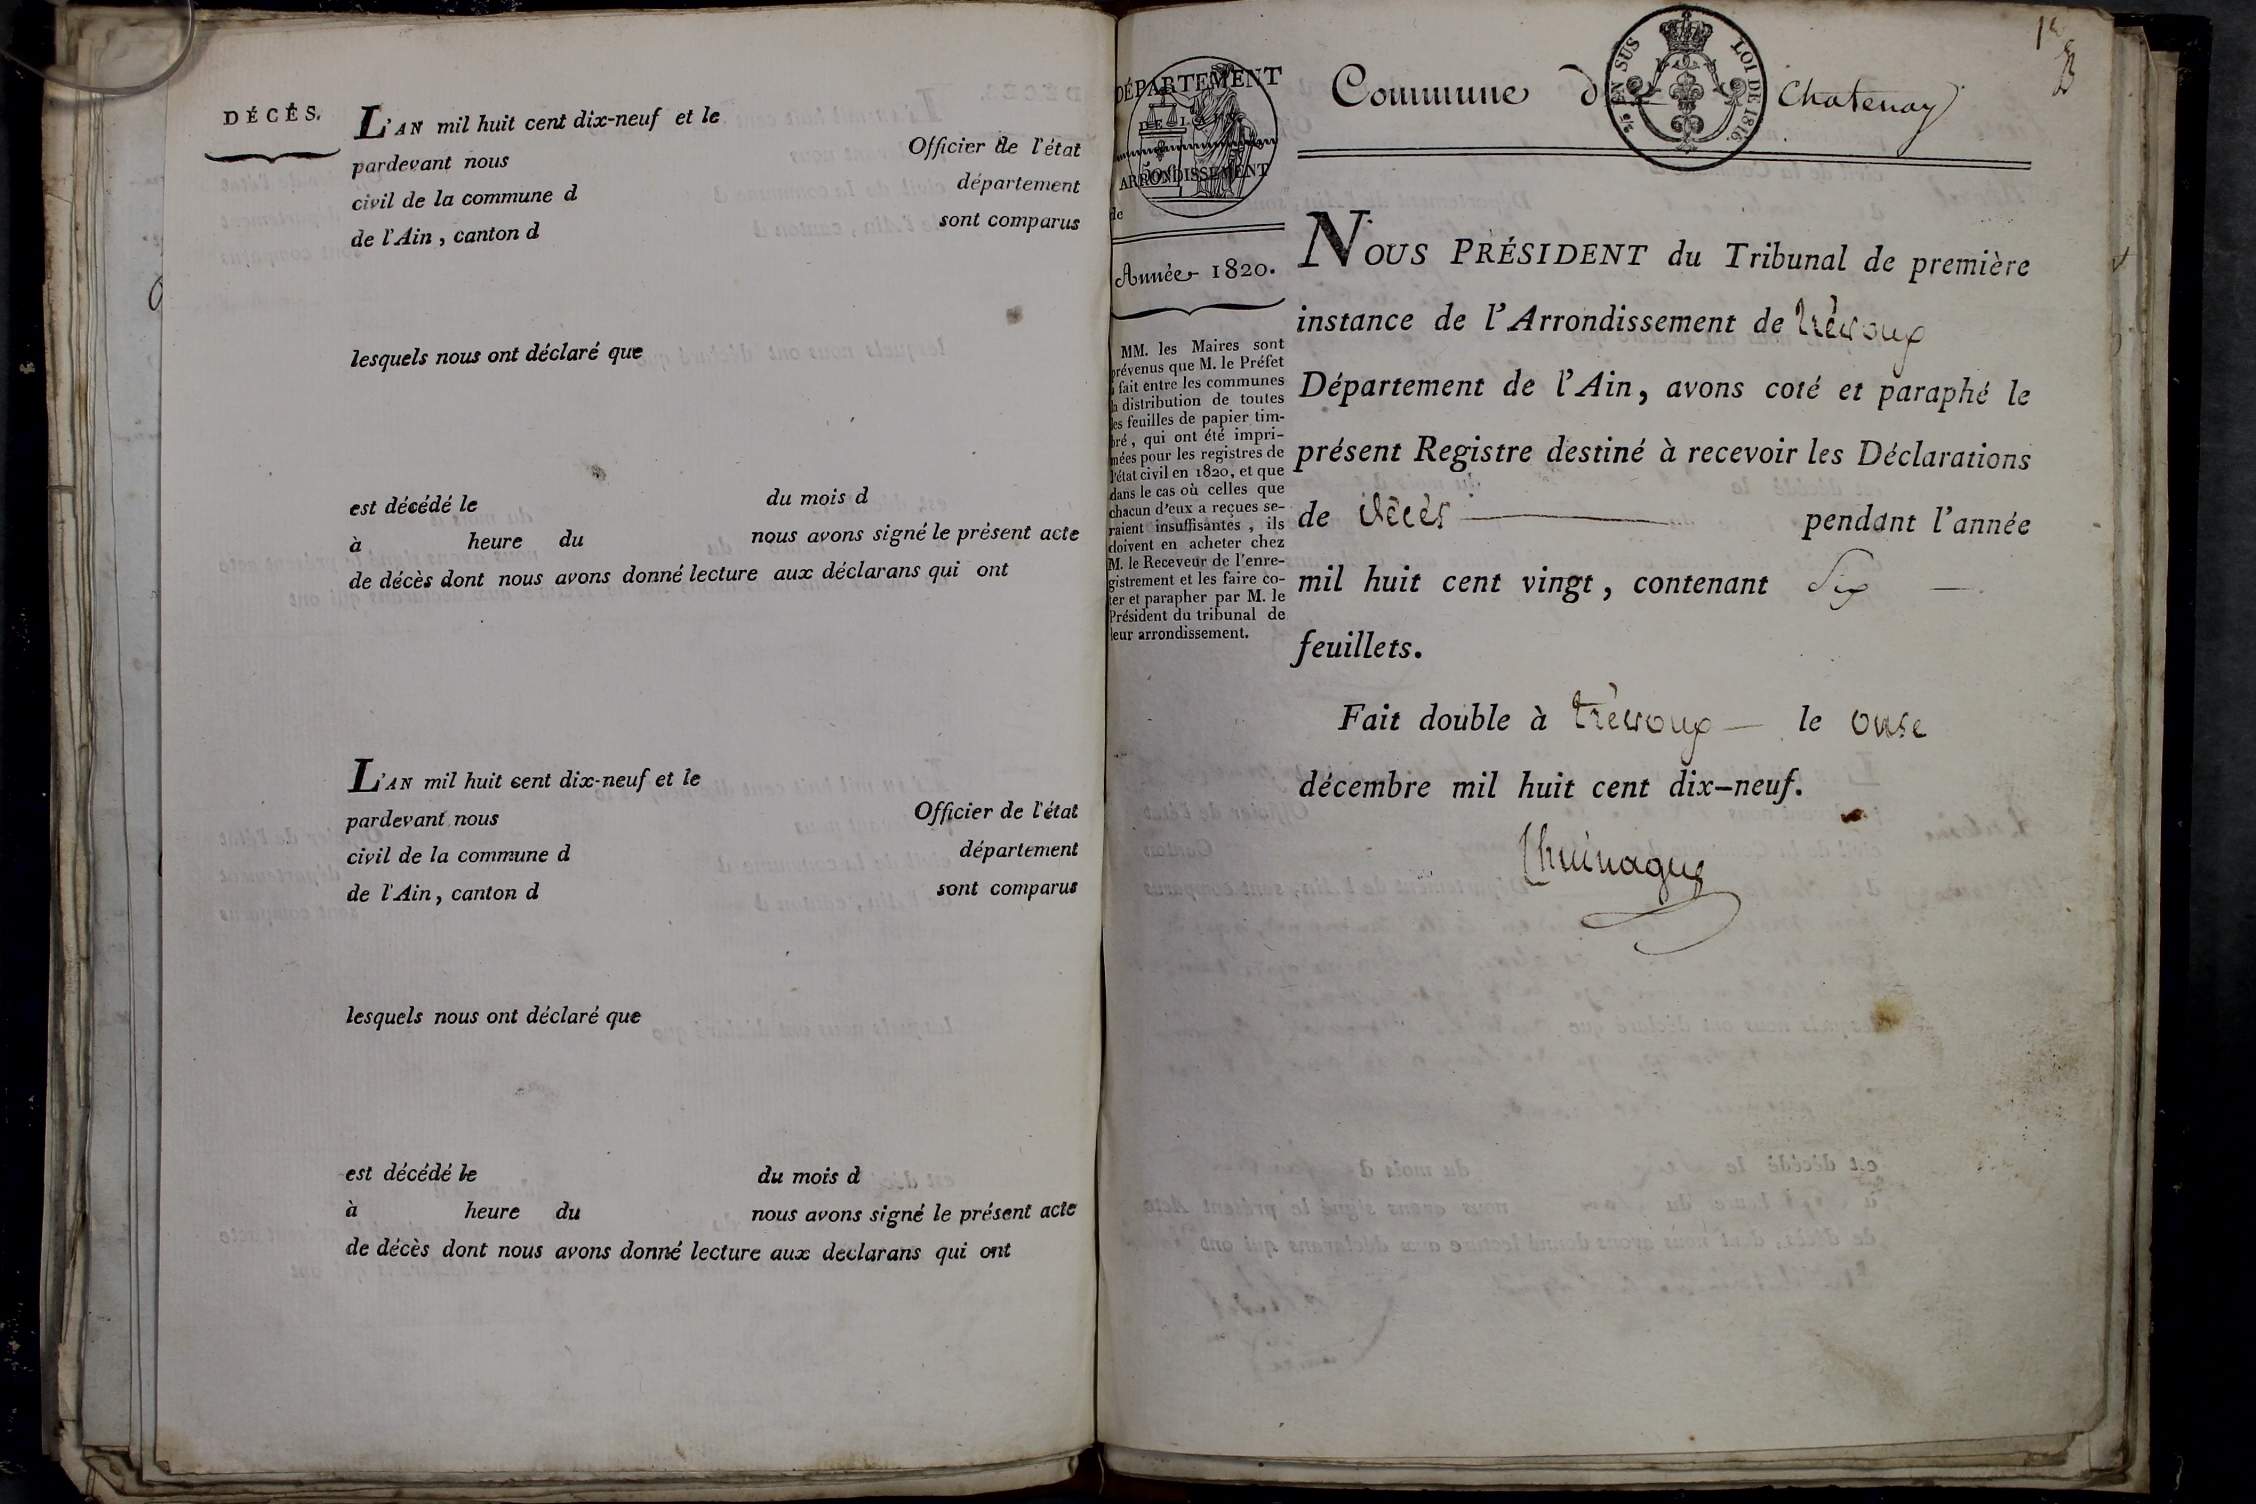 DÉCÈS.
L'AN mil huit cent dix-neuf et le
pardevant nous Officier de l'état
civil de la commune d département
de l'Ain, canton d sont comparus
lesquels nous ont déclaré que
est décédé le du mois d
à heure du nous avons signé le présent acte
de décès dont nous avons donné lecture aux déclarans qui ont
L'AN mil huit cent dix-neuf et le
pardevant nous Officier de l'état
civil de la commune d département
de l'Ain, canton d sont comparus
lesquels nous ont déclaré que
est décédé le du mois d
à heure du nous avons signé le présent acte
de décès dont nous avons donné lecture aux declarans qui ont
DÉPARTEMENT
DE L'AIN
ARRONDISSEMENT
de
Année 1820.
MM. les Maires sont
prévenus que M. le Préfet
a fait entre les communes
la distribution de toutes
les feuilles de papier tim-
bré, qui ont été impri-
mées pour les registres de
l'état civil en 1820, et que
dans le cas où celles que
chacun d'eux a reçues se-
raient insuffisantes, ils
doivent en acheter chez
M. le Receveur de l'enre-
gistrement et les faire co-
ter et parapher par M. le
Président du tribunal de
leur arrondissement.
Commune d Chatenay
EN SUS LOI DE 1816.
NOUS PRÉSIDENT du Tribunal de première
instance de l'Arrondissement de trévoux
Département de l'Ain, avons coté et paraphé le
présent Registre destiné à recevoir les Déclarations
de décès pendant l'année
mil huit cent vingt, contenant Six
feuillets.
Fait double à trévoux le onse
décembre mil huit cent dix-neuf.